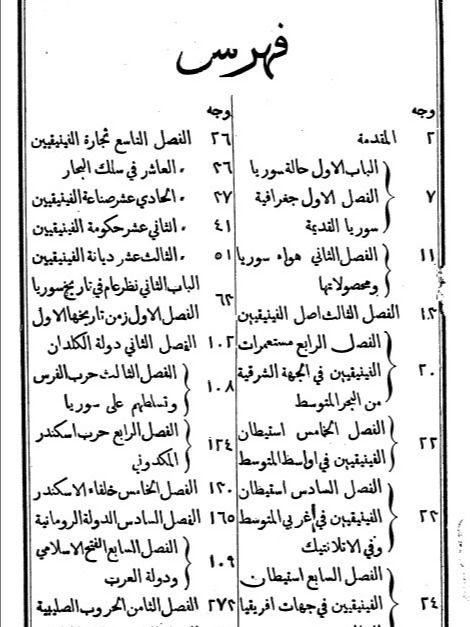 فهرس
وجه
٢ المقدمة
الباب الاول حالة سوريا
٧ الفصل الاول جغرافية
سوريا القديمة
١١ الفصل الثاني هواء سوريا
ومحصولاتها
١٢ الفصل الثالث اصل الفينيقيين
الفصل الرابع مستعمرات
٢٠ الفينيقيين في الجهة الشرقية
من البحر المتوسط
٢٢ الفصل الخامس استيطان
الفينيقيين في اواسط المتوسط
الفصل السادس استيطان
٢٣ الفينيقيين في غربي المتوسط
وفي الاتلانتيك
الفصل السابع استيطان
٢٤ الفينيقيين في جهات افريقيا
وجه
٢٦ الفصل التاسع تجارة الفينيقيين
٣٦ ء العاشر في سلك البحار
٣٧ ء الحادي عشر صناعة الفينيقيين
٤١ ء الثاني عشر حكومة الفينيقيين
٥١ ء الثالث عشر ديانة الفينيقيين
الباب الثاني نظر عام في تاريخ سوريا
٦٢ الفصل الاول زمن تاريخها الاول
١٠٢ الفصل الثاني دولة الكلدان
١٠٨ الفصل الثالث حرب الفرس
وتسلطهم على سوريا
١٢٤ الفصل الرابع حرب اسكندر
المكدوني
١٣٠ الفصل الخامس خلفاء الاسكندر
١٦٥ الفصل السادس الدولة الرومانية
١٠٩ الفصل السابع الفتح الاسلامي
ودولة العرب
٢٧٢ الفصل الثامن الحروب الصليبية